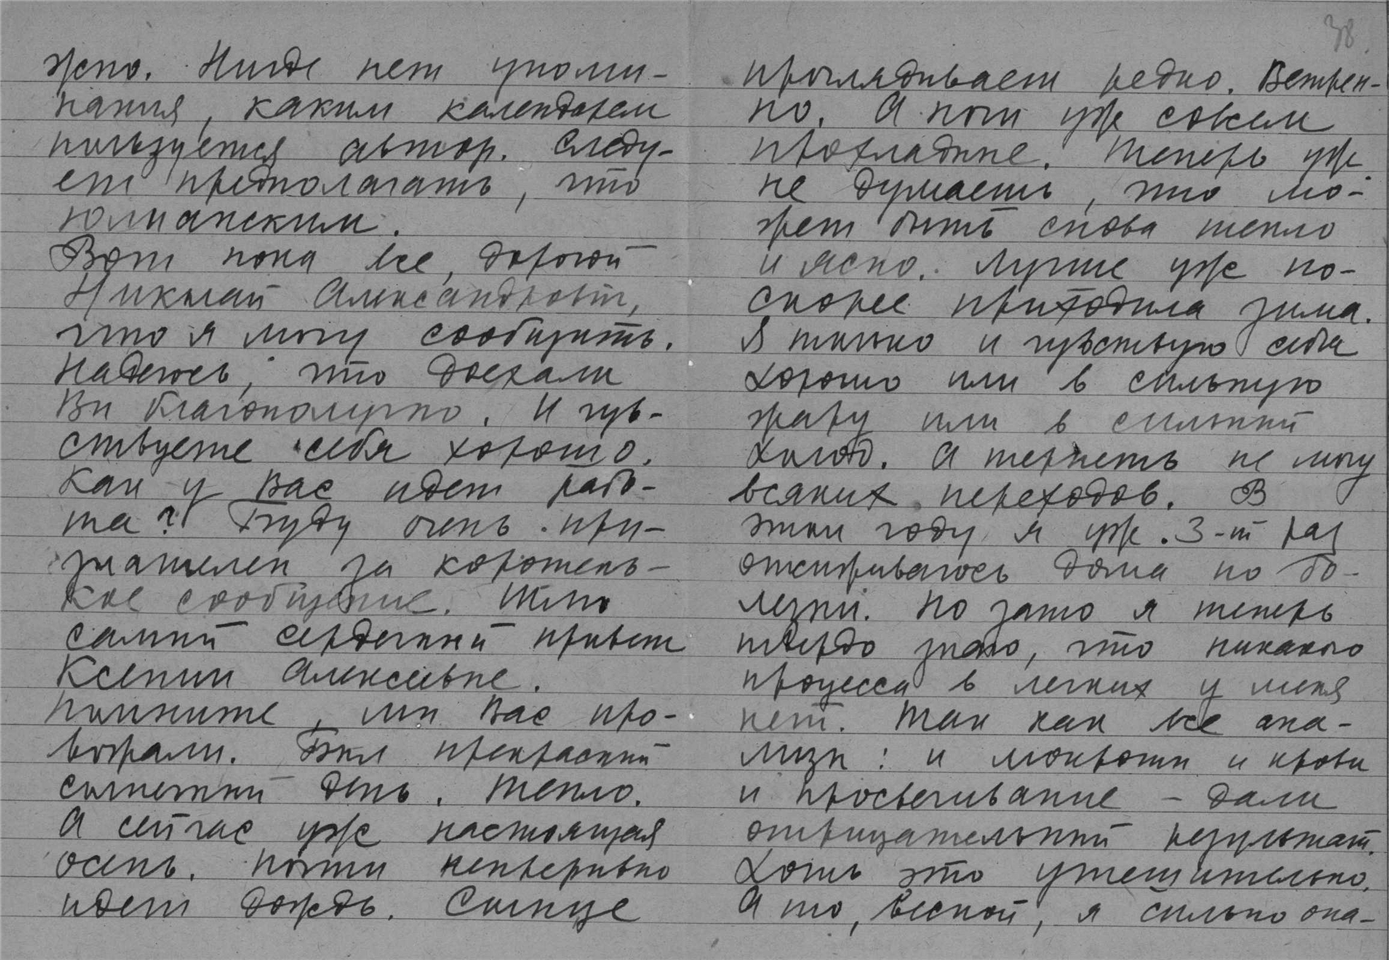 жно. Нигде нет упоми-
нания, каким календарем
пользуется автор. Следу-
ет предполагать, что
юлианским.
Вот пока все, дорогой
Николай Александрович,
что я могу сообщить.
Надеюсь, что доехали
Вы благополучно. И чув-
ствуете себя хорошо.
Как у Вас идет рабо-
та? Буду очень при-
знателен за коротень-
кое сообщение. Шлю
самый сердечный привет
Ксении Алексеевне.
Помните, мы Вас про-
вожали. Был прекрасный
солнечный день. Тепло.
А сейчас уже настоящая
осень. Почти непрерывно
идет дождь. Солнце
38.
проглядывает редко. Ветрен-
но. А ночи уже совсем
прохладные. Теперь уже
не думаешь, что мо-
жет быть снова тепло
и ясно. Лучше уже по-
скорее приходила зима.
Я только и чувствую себя
хорошо или в сильную
жару или в сильный
холод. А терпеть не могу
всяких переходов. В
этом году я уже 3-й раз
отсиживаюсь дома по бо-
лезни. Но зато я теперь
твердо знаю, что никакого
процесса в легких у меня
нет. Так как все ана-
лизы: и мокроты и крови
и просвечивание – дали
отрицательный результат.
Хоть это утешительно.
А то, весной, я сильно опа-